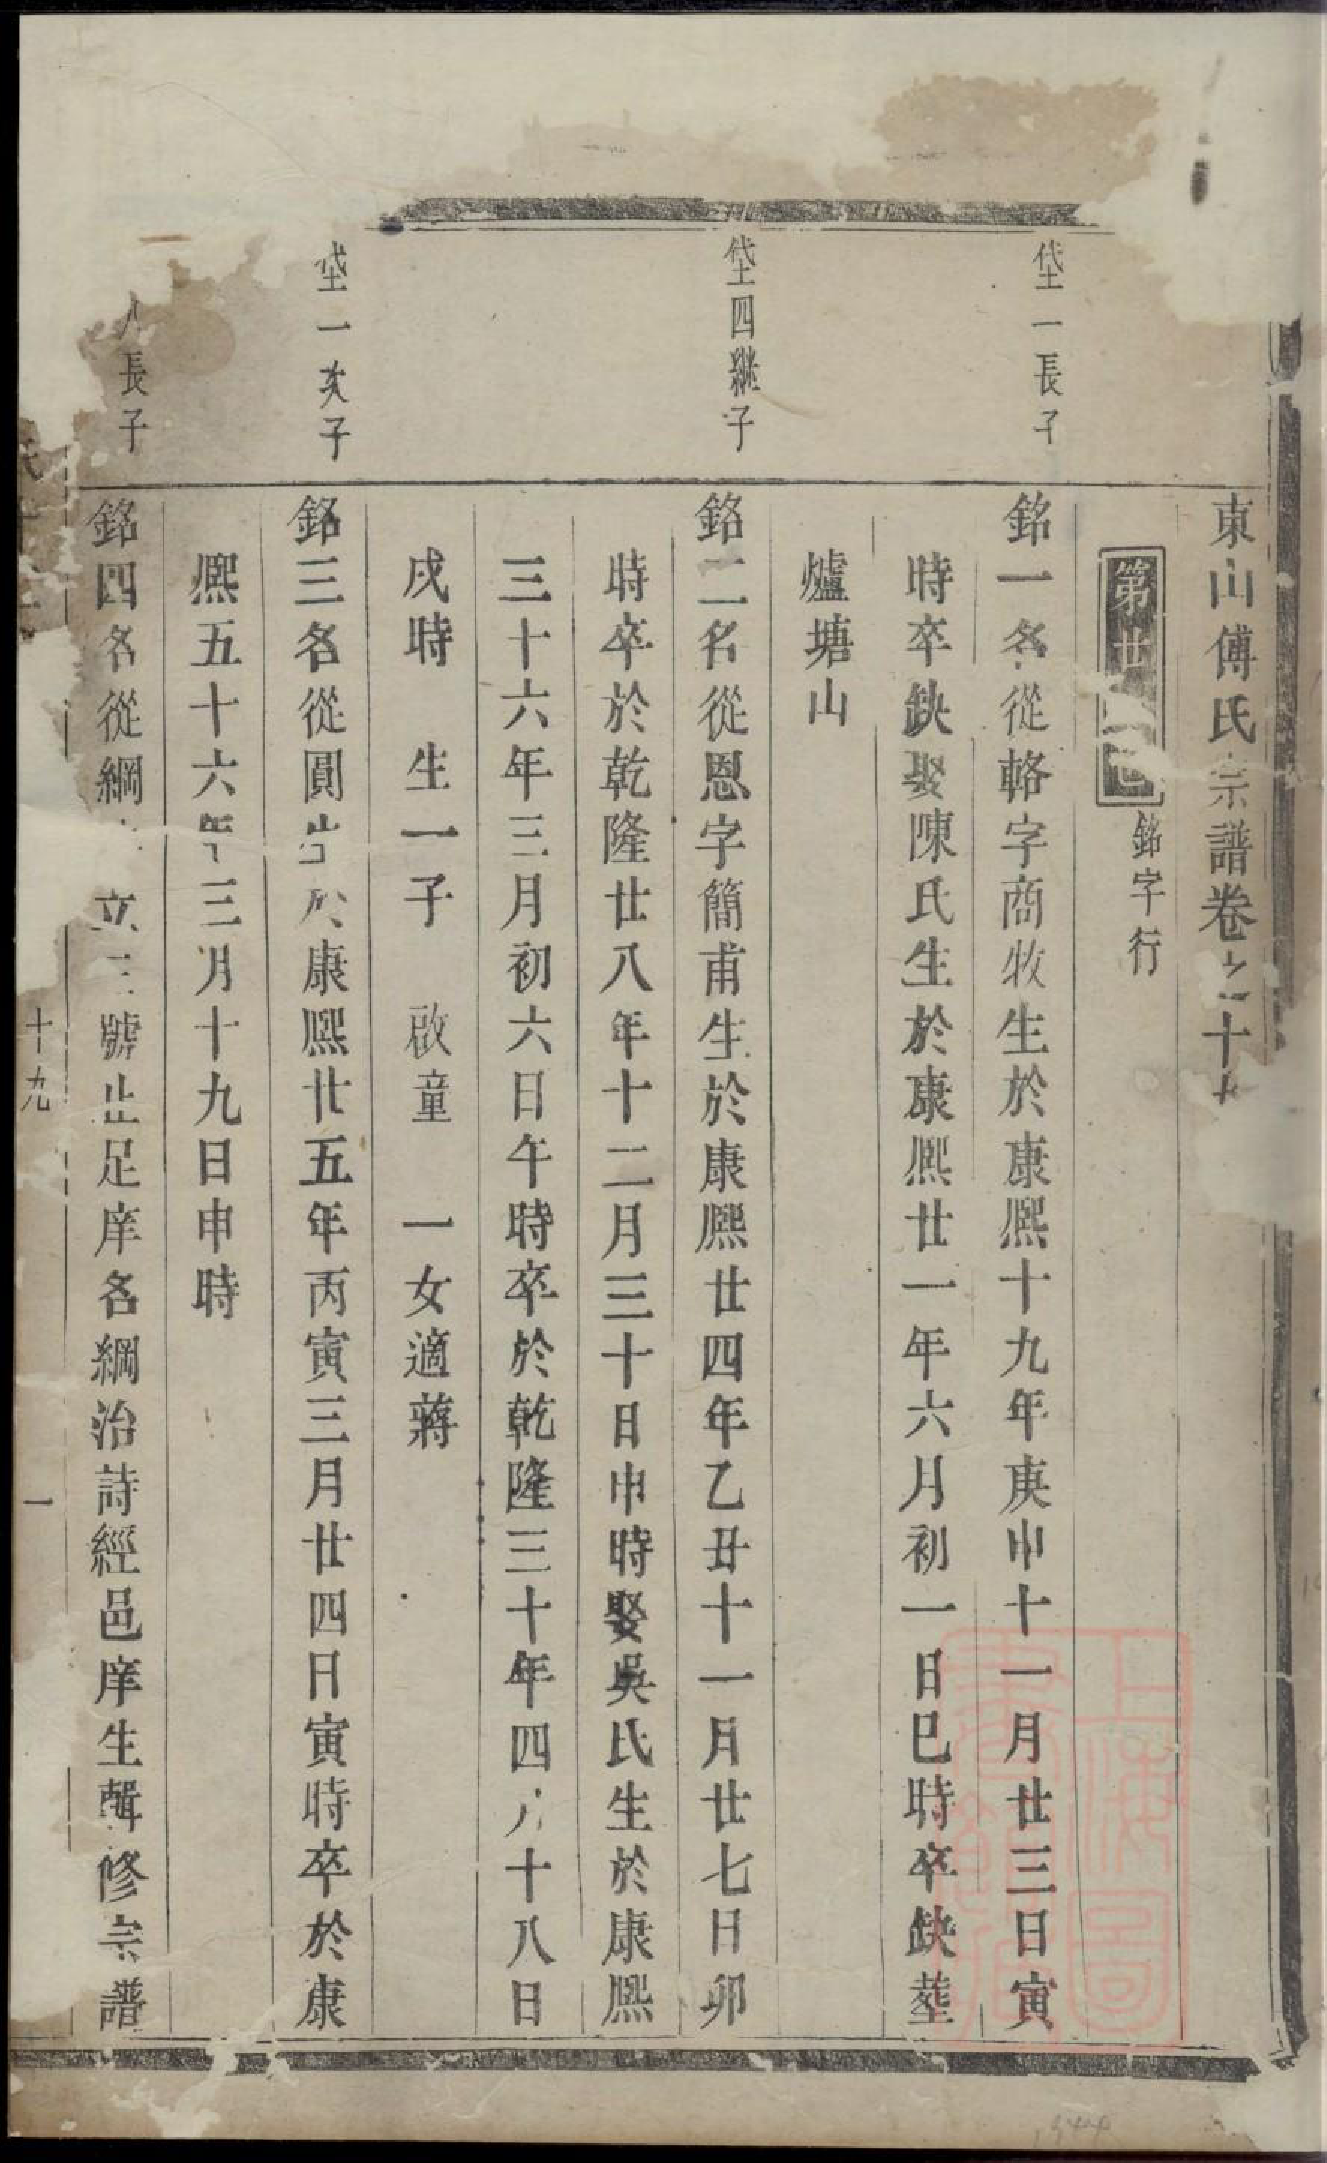 東山傅氏宗譜卷之十九
第廿一世 銘字行
垈一長子
銘一名從輅字商牧生於康熙十九年庚申十一月廿三日寅
時卒缺娶陳氏生於康熙廿一年六月初一日巳時卒缺塟
爐塘山
垈四繼子
銘二名從恩字簡甫生於康熙廿四年乙丑十一月廿七日卯
時卒於乾隆廿八年十二月三十日申時娶吳氏生於康熙
三十六年三月初六日午時卒於乾隆三十年四月十八日
戌時 生一子 啟童 一女適蔣
垈一次子
銘三名從圓生於康熙廿五年丙寅三月廿四日寅時卒於康
熙五十六年三月十九日申時
長子
銘四名從綱字立三號止足庠名綱治詩經邑庠生輯修宗譜
十九
一
上海圖書館藏